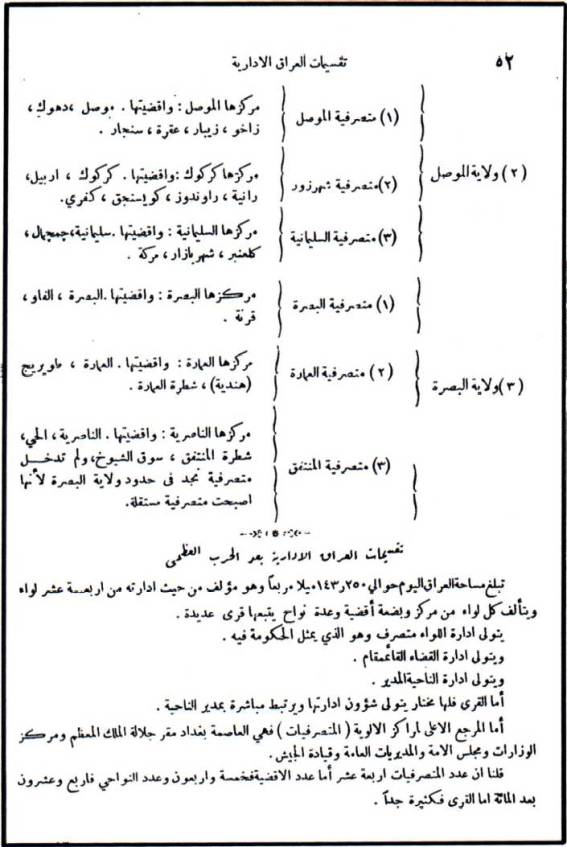 ٥٢
تقسيمات العراق الادارية
(٢) ولاية الموصل
(١) متصرفية الموصل
مركزها الموصل : واقضيتها . موصل ، دهوك ،
زاخو ، زيبار ، عقرة ، سنجار .
(٢) متصرفية شهرزور
مركزها كركوك : واقضيتها . كركوك ، اربيل،
رانية ، راوندوز ، كويسنجق ، كفري.
(٣) متصرفية السليمانية
مركزها السليمانية : واقضيتها .سليمانية، جمجمال،
كلعنبر ، شهربازار ، مركة .
(٣) ولاية البصرة
(١) متصرفية البصرة
مركزها البصرة : واقضيتها .البصرة ، الفاو ،
قرنة .
(٢) متصرفية العمارة
مركزها العمارة : واقضيتها . العمارة ، طويريج
(هندية) ، شطرة العمارة .
(٣) متصرفية المنتفق
مركزها الناصرية : واقضيتها . الناصرية ، الحي،
شطرة المنتفق ، سوق الشيوخ، ولم تدخل
متصرفية نجد فى حدود ولاية البصرة لأنها
اصبحت متصرفية مستقلة.
تقسيمات العراق الادارية بعد الحرب العظمى
تبلغ مساحة العراق اليوم حوالي ١٤٣٫٢٥٠ ميلا مربعاً وهو مؤلف من حيث ادارته من اربعة عشر لواء
ويتألف كل لواء من مركز وبضعة أقضية وعدة نواح يتبعها قرى عديدة .
يتولى ادارة اللواء متصرف وهو الذي يمثل الحكومة فيه .
ويتولى ادارة القضاء القائممقام .
ويتولى ادارة الناحية المدير .
أما القرى فلها مختار يتولى شؤون ادارتها ويرتبط مباشرة بمدير الناحية .
أما المرجع الاعلى لمراكز الالوية ( المتصرفيات ) فهي العاصمة بغداد مقر جلالة الملك المعظم ومركز
الوزارات ومجلس الامة والمديريات العامة وقيادة الجيش.
قلنا ان عدد المتصرفيات اربعة عشر أما عدد الاقضية فخمسة واربعون وعدد النواحي فاربع وعشرون
بعد المائة اما القرى فكثيرة جداً .